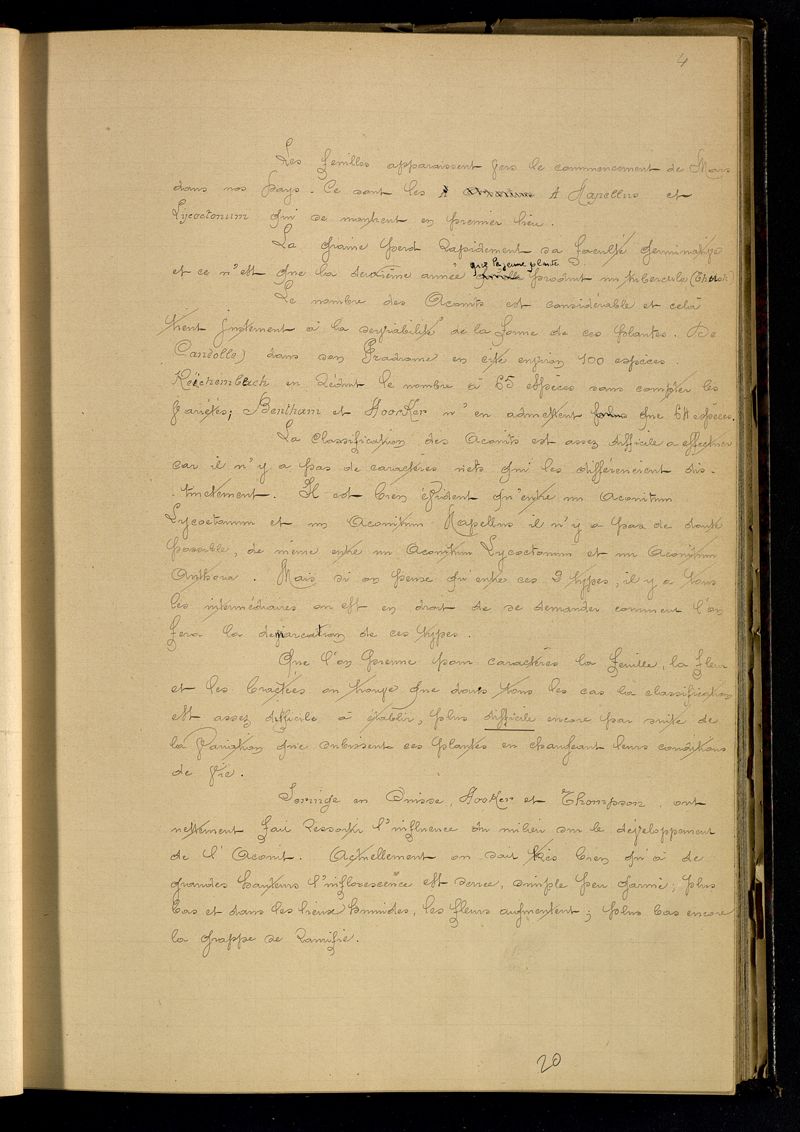 4
Les feuilles apparaissent vers le commencement de Mars
dans nos pays. Ce sont les A Napellus et
Lycoctonum qui se montrent en premier lieu.
La graine perd rapidement sa faculté germinative
que la jeune plante
et ce n'est que la deuxième année produit un tubercule
Le nombre des Aconits est considérable et celà
tient justement à la variabilité de la forme de ces plantes. De
Candolle) dans son Prodrome en cite environ 100 espèces.
Reichembach en réduit le nombre à 65 espèces sans compter les
variétés; Bentham et Hooker n'en admettent plus que 61 espèces.
La classification des Aconits est assez difficile a effectuer
car il n'y a pas de caractères nets qui les différencient dis-
-tinctement. Il est bien évident qu'entre un Aconitum
Lycoctonum et un Aconitum Napellus il n'y a pas de doute
possible, de même entre un Aconitum Lycoctonum et un Aconitum
Anthora. Mais si on pense qu'entre ces 3 types, il y a tous
les intermédiaires on est en droit de se demander comment l'on
fera la démarcation de ces types.
Que l'on prenne pour caractères la feuille, la fleur
et les bractées on trouve que dans tous les cas la classification
est assez difficile à établir, plus difficile encore par suite de
la variation que subissent ces plantes en changeant leurs conditions
de vie.
Seringe en Suisse, Hooker et Thompson, ont
nettement fait ressortir l'influence du milieu sur le développement
de l'Aconit. Actuellement on sait très bien qu'à de
grandes hauteurs l'inflorescence est serrée, simple peu garnie; plus
bas et dans les lieux humides, les fleurs augmentent; plus bas encore
la grappe se ramifie.
20